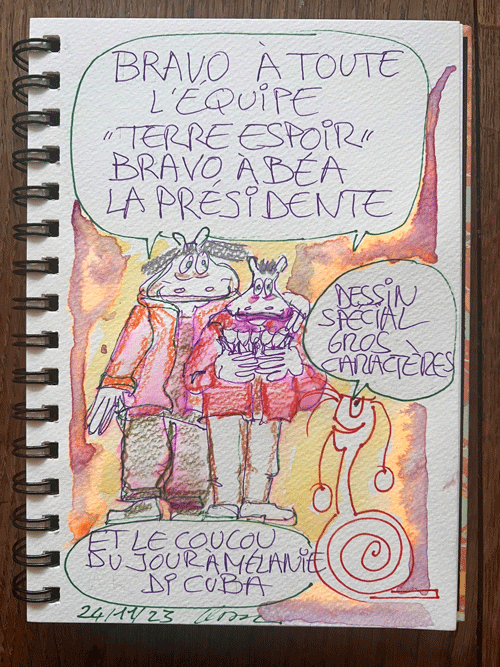 BRAVO À TOUTE
L'EQUIPE
"TERRE ESPOIR"
BRAVO A BÉA
LA PRÉSIDENTE
DESSIN
SPÉCIAL
GROS
CARACTÈRES
ET LE COUCOU
DU JOUR À MÉLANIE
DI CUBA
24/11/23